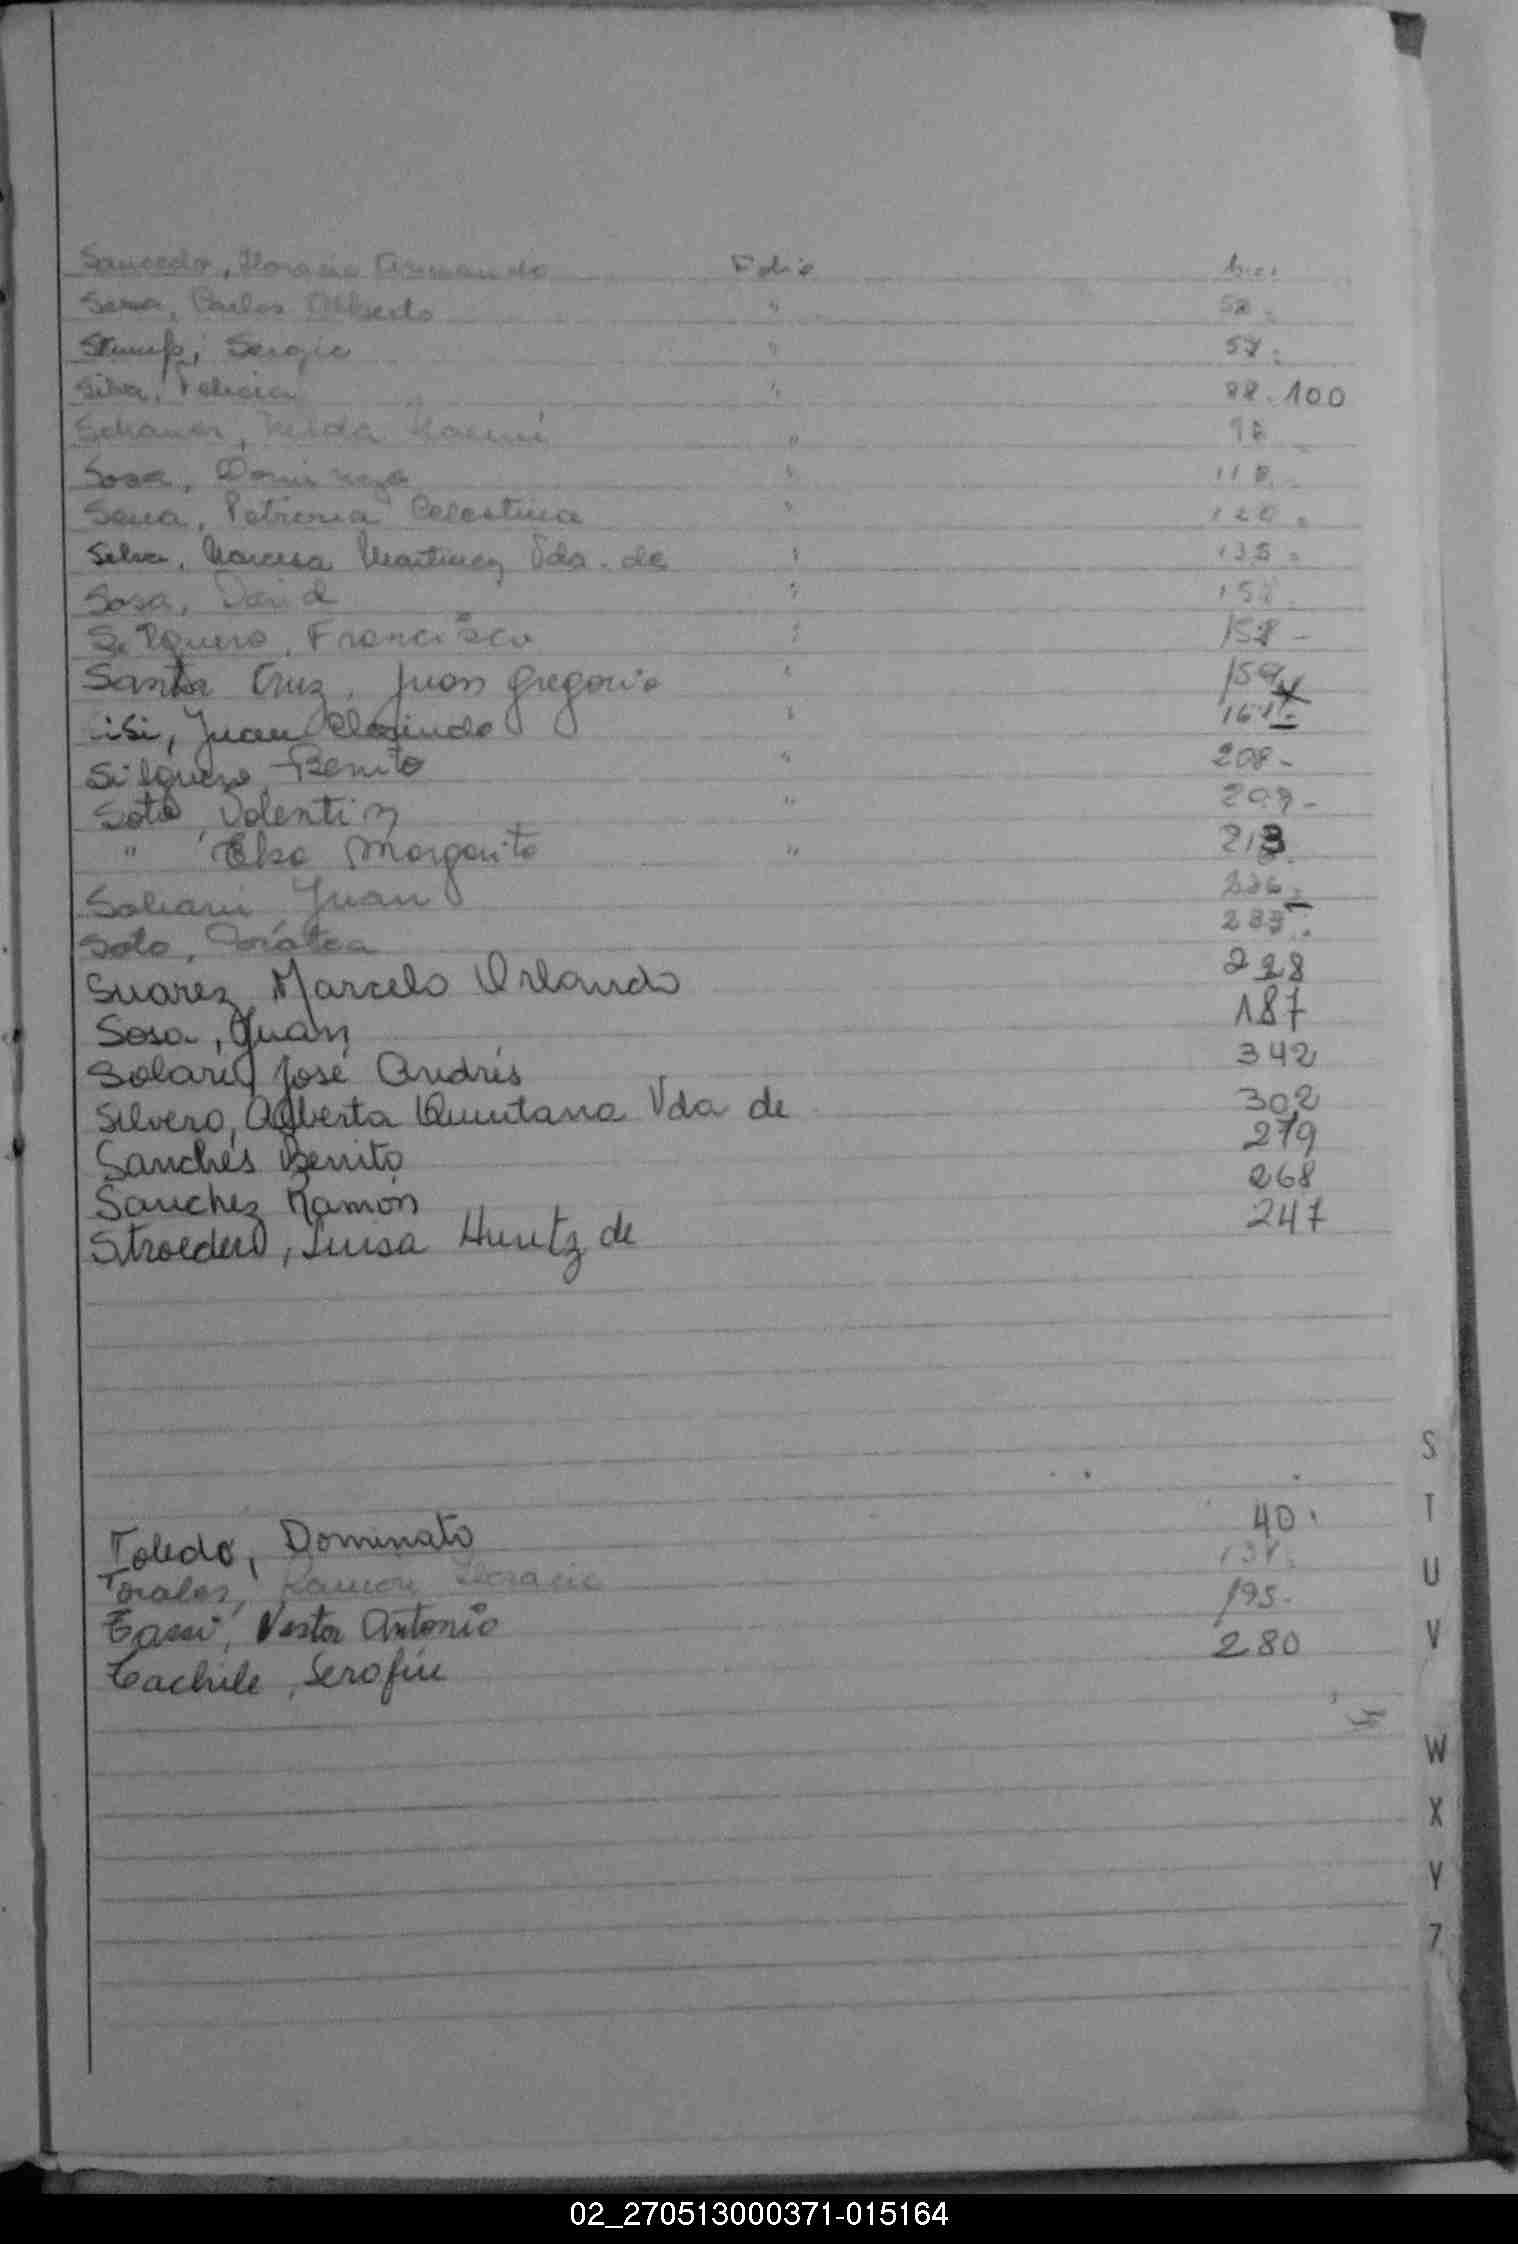 Saucedo, Horacio Armando Folio
Sena, Carlos Alberto " 52.
Stumpf, Sergio " 57.
Silva, Felicia " 88.100
Schauer, Nelda Noemí "
Sosa, Dominga " 118.
Sena, Petrona Celestina " 120.
Silva, Narcisa Martinez Vda. de " 135.
Sosa, David "
Silguero, Francisco " 158-
Santa Cruz, Juan Gregorio " 159
Juan Clorindo " 161-
Silguero, Benito " 208-
Soto, Valentin " 209-
" Elsa Margarita " 213
Juan 236.
Soto, 233.
Suarez, Marcelo Orlando 228
Sosa, Juan 187
Solari, José Andrés 342
Silvero, Alberta Quintana Vda de 302
Sanchés Benito 279
Sanchez Ramón 268
Stroeder, Luisa Huntz de 247
S
T
U
V
W
X
Y
Z
Toledo, Dominato 40.
Torales, Ramon Horacio 131.
Nestor Antonio 195.
Cachile, Serafin 280
02_270513000371-015164